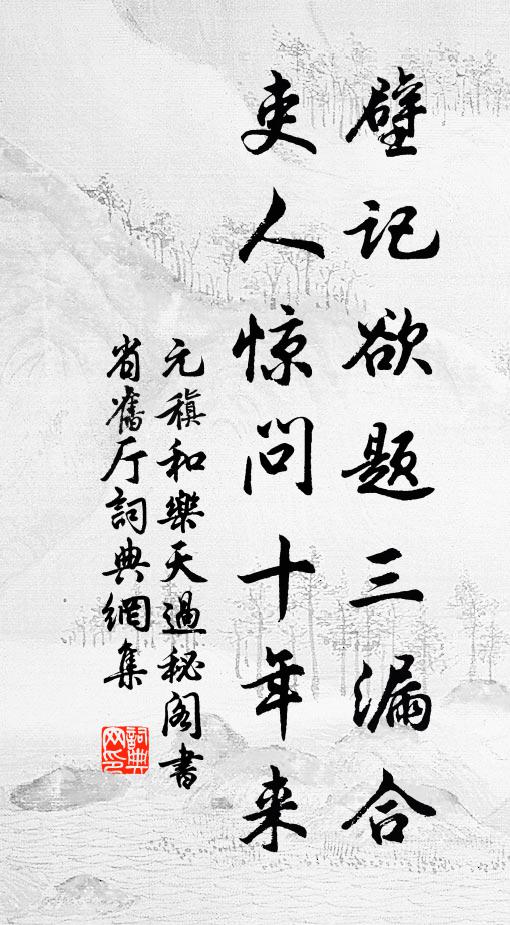 壁记欲题三漏合
吏人惊问十年来
元稹和樂天過秘阁書
省舊厅詞典網集
詞典网印